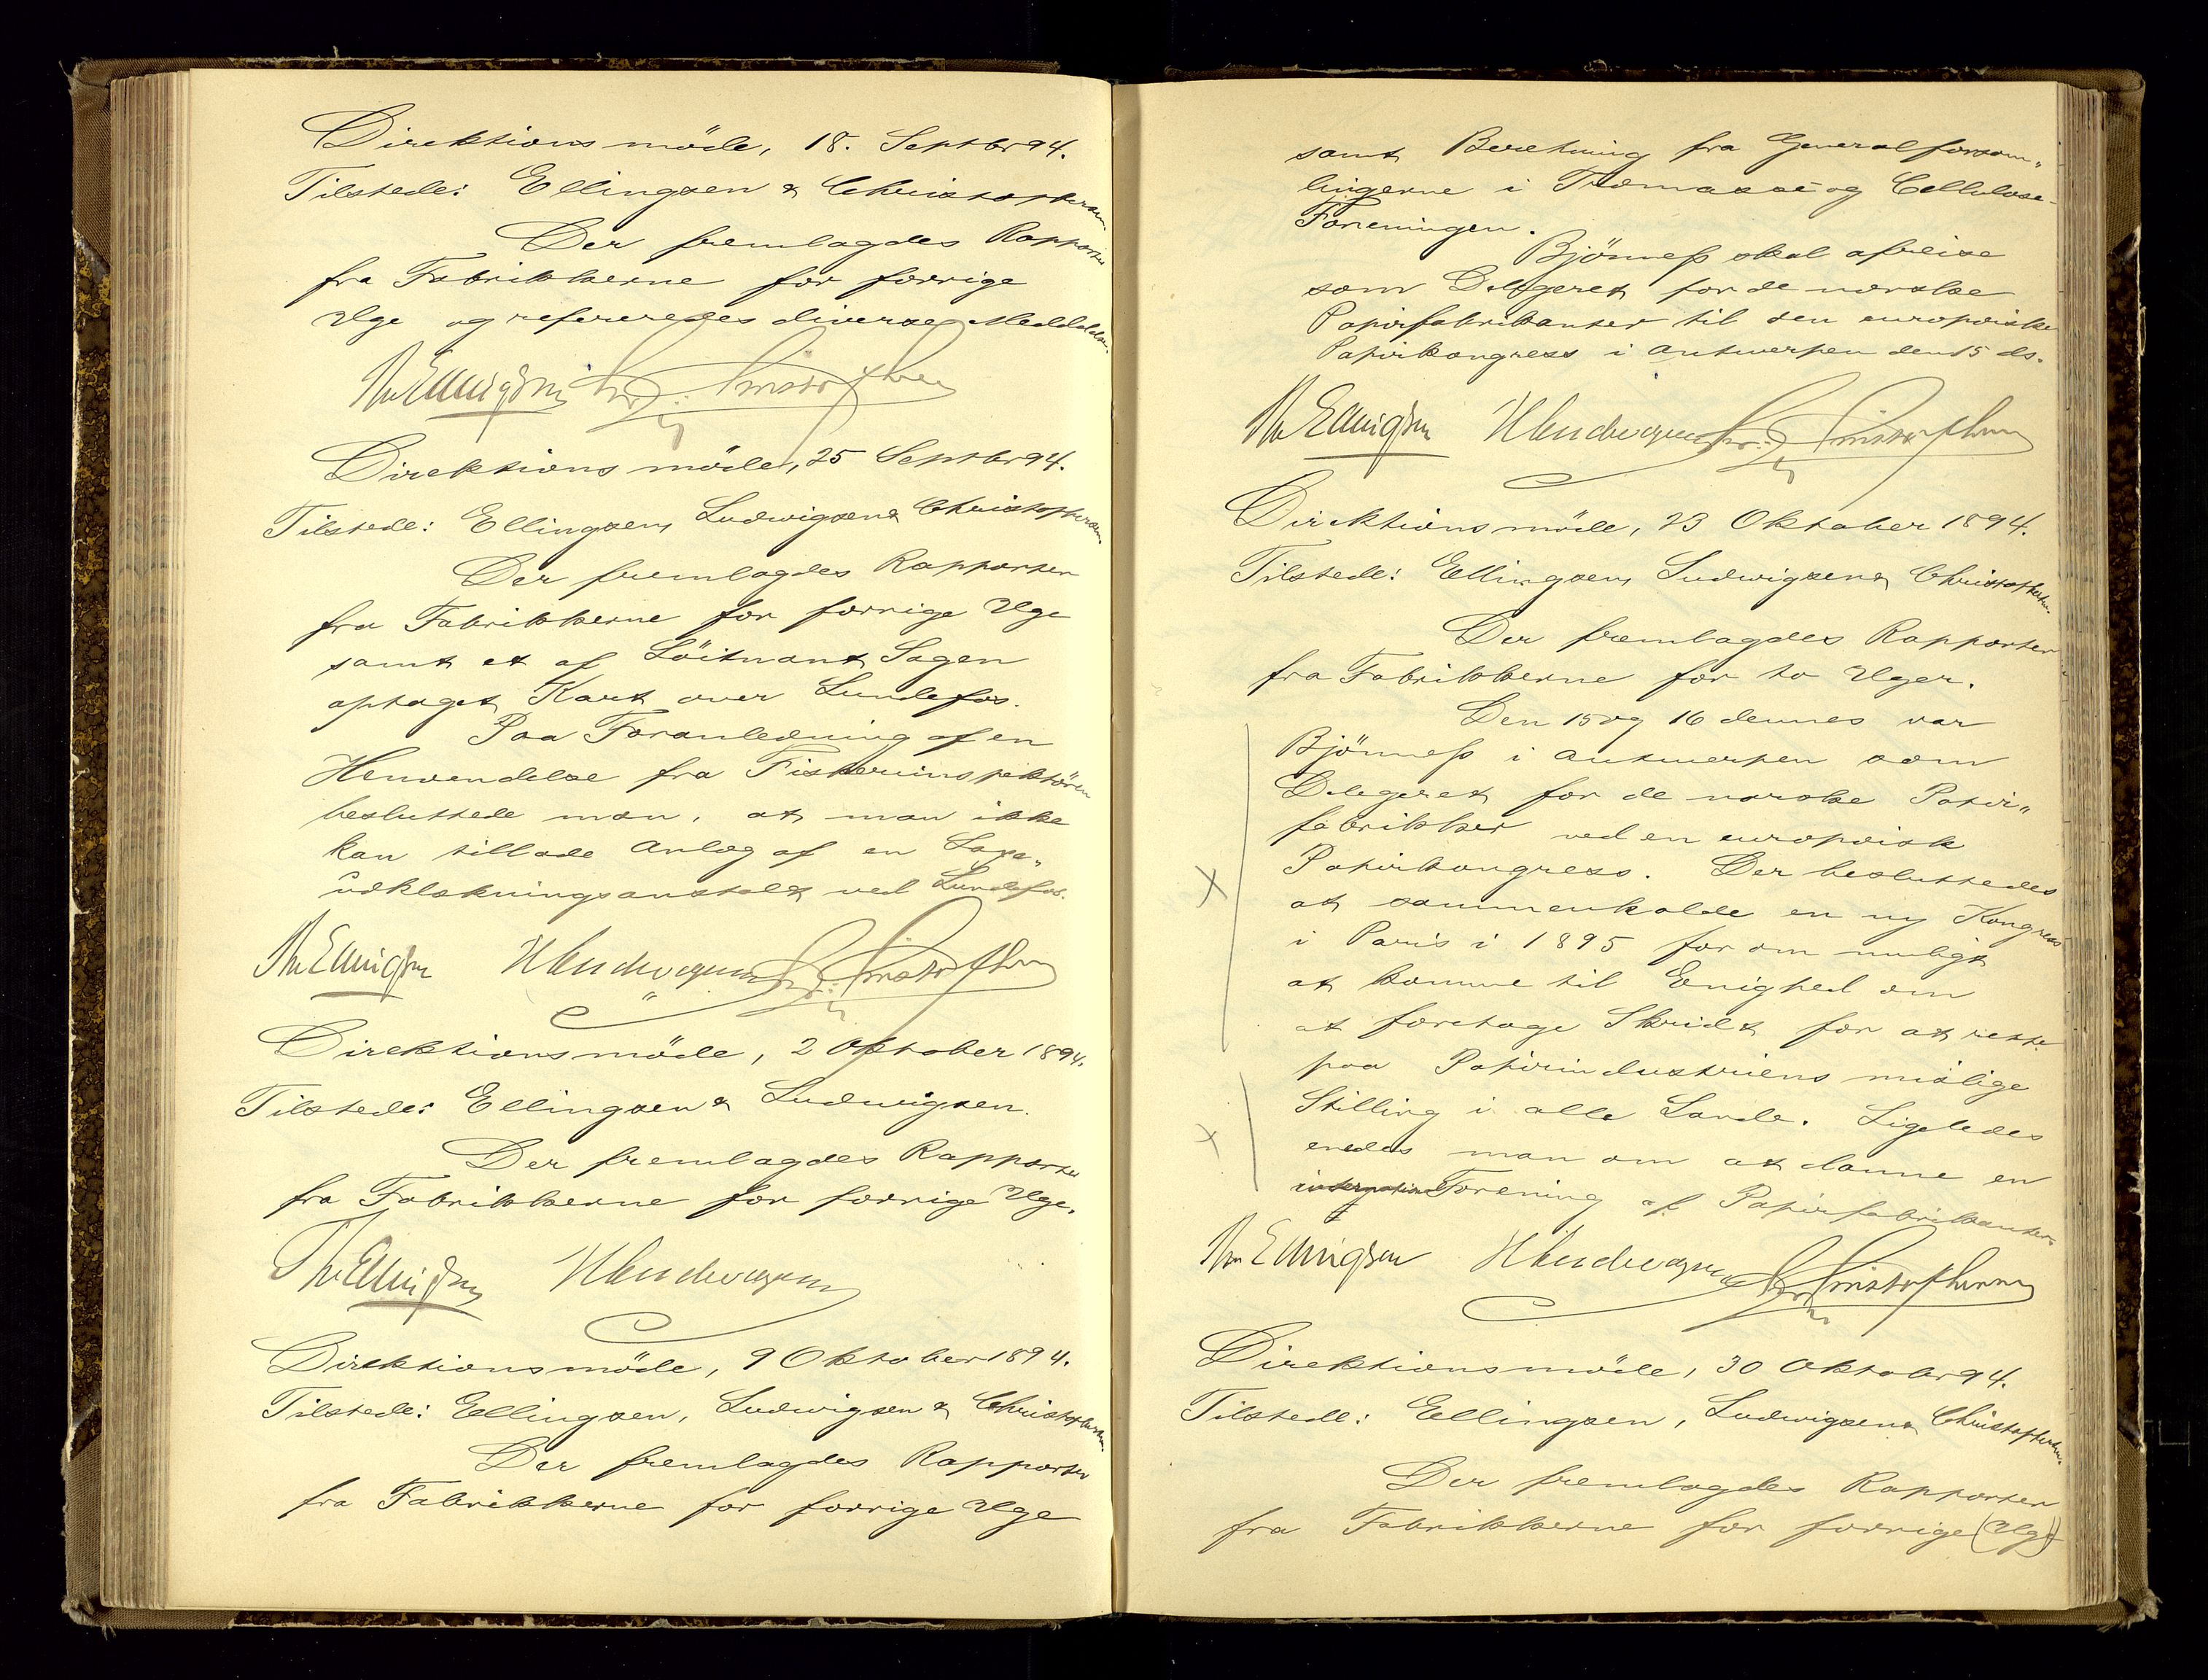 Direktionsmöde, 18. Septbr 94.
Tilstede: Ellingsen & Christophersen.
Der fremlagdes Rapporter
fra Fabrikkerne for forrige
Uge og refereredes diverse Meddelelser.
Direktionsmöde, 25 Septbr 94.
Tilstede: Ellingsen, Ludwigsen & Christophersen.
Der fremlagdes Rapporter
fra Fabrikkerne for forrige Uge
samt et af Löitnant Sagen
optaget Kart over Lundefos.
Paa Foranledning af en
Henvendelse fra Fiskeriinspektören
besluttede man, at man ikke
kan tillade Anlæg af en Laxe„
udklækningsanstalt ved Lundefos.
Direktionsmöde, 2 Oktober 1894.
Tilstede: Ellingsen & Ludwigsen.
Der fremlagdes Rapporter
fra Fabrikkerne for forrige Uge.
Direktionsmöde, 9 Oktober 1894.
Tilstede: Ellingsen, Ludwigsen & Christophersen.
Der fremlagdes Rapporter
fra Fabrikkerne for forrige Uge
samt Beretning fra Generalforsam„
lingerne i Træmasse og Cellulose-
Foreningen.
Bjönness skal afreise
som Delegeret for de norske
Papirfabrikanter til den europæiske
Papirkongress i Antwerpen den 15 ds.
Direktionsmöde, 23 Oktober 1894.
Tilstede: Ellingsen, Ludwigsen & Christophersen.
Der fremlagdes Rapporter
fra Fabrikkerne for to Uger.
Den 15 og 16 dennes var
Bjönness i Antwerpen som
Delegeret for de norske Papir„
fabrikker ved en europæisk
Papirkongress. Der besluttedes
at sammenkalde en ny Kongress
i Paris i 1895 for om muligt
at komme til Enighed om
at foretage Skridt for at rette
paa Papirindustriens mislige
Stilling i alle Lande. Ligeledes
enedes man om at danne en
Forening af Papirfabrikanter.
Direktionsmöde, 30 Oktober 94.
Tilstede: Ellingsen, Ludwigsen & Christophersen.
Der fremlagdes Rapporter
fra Fabrikkerne for forrige (Uge)